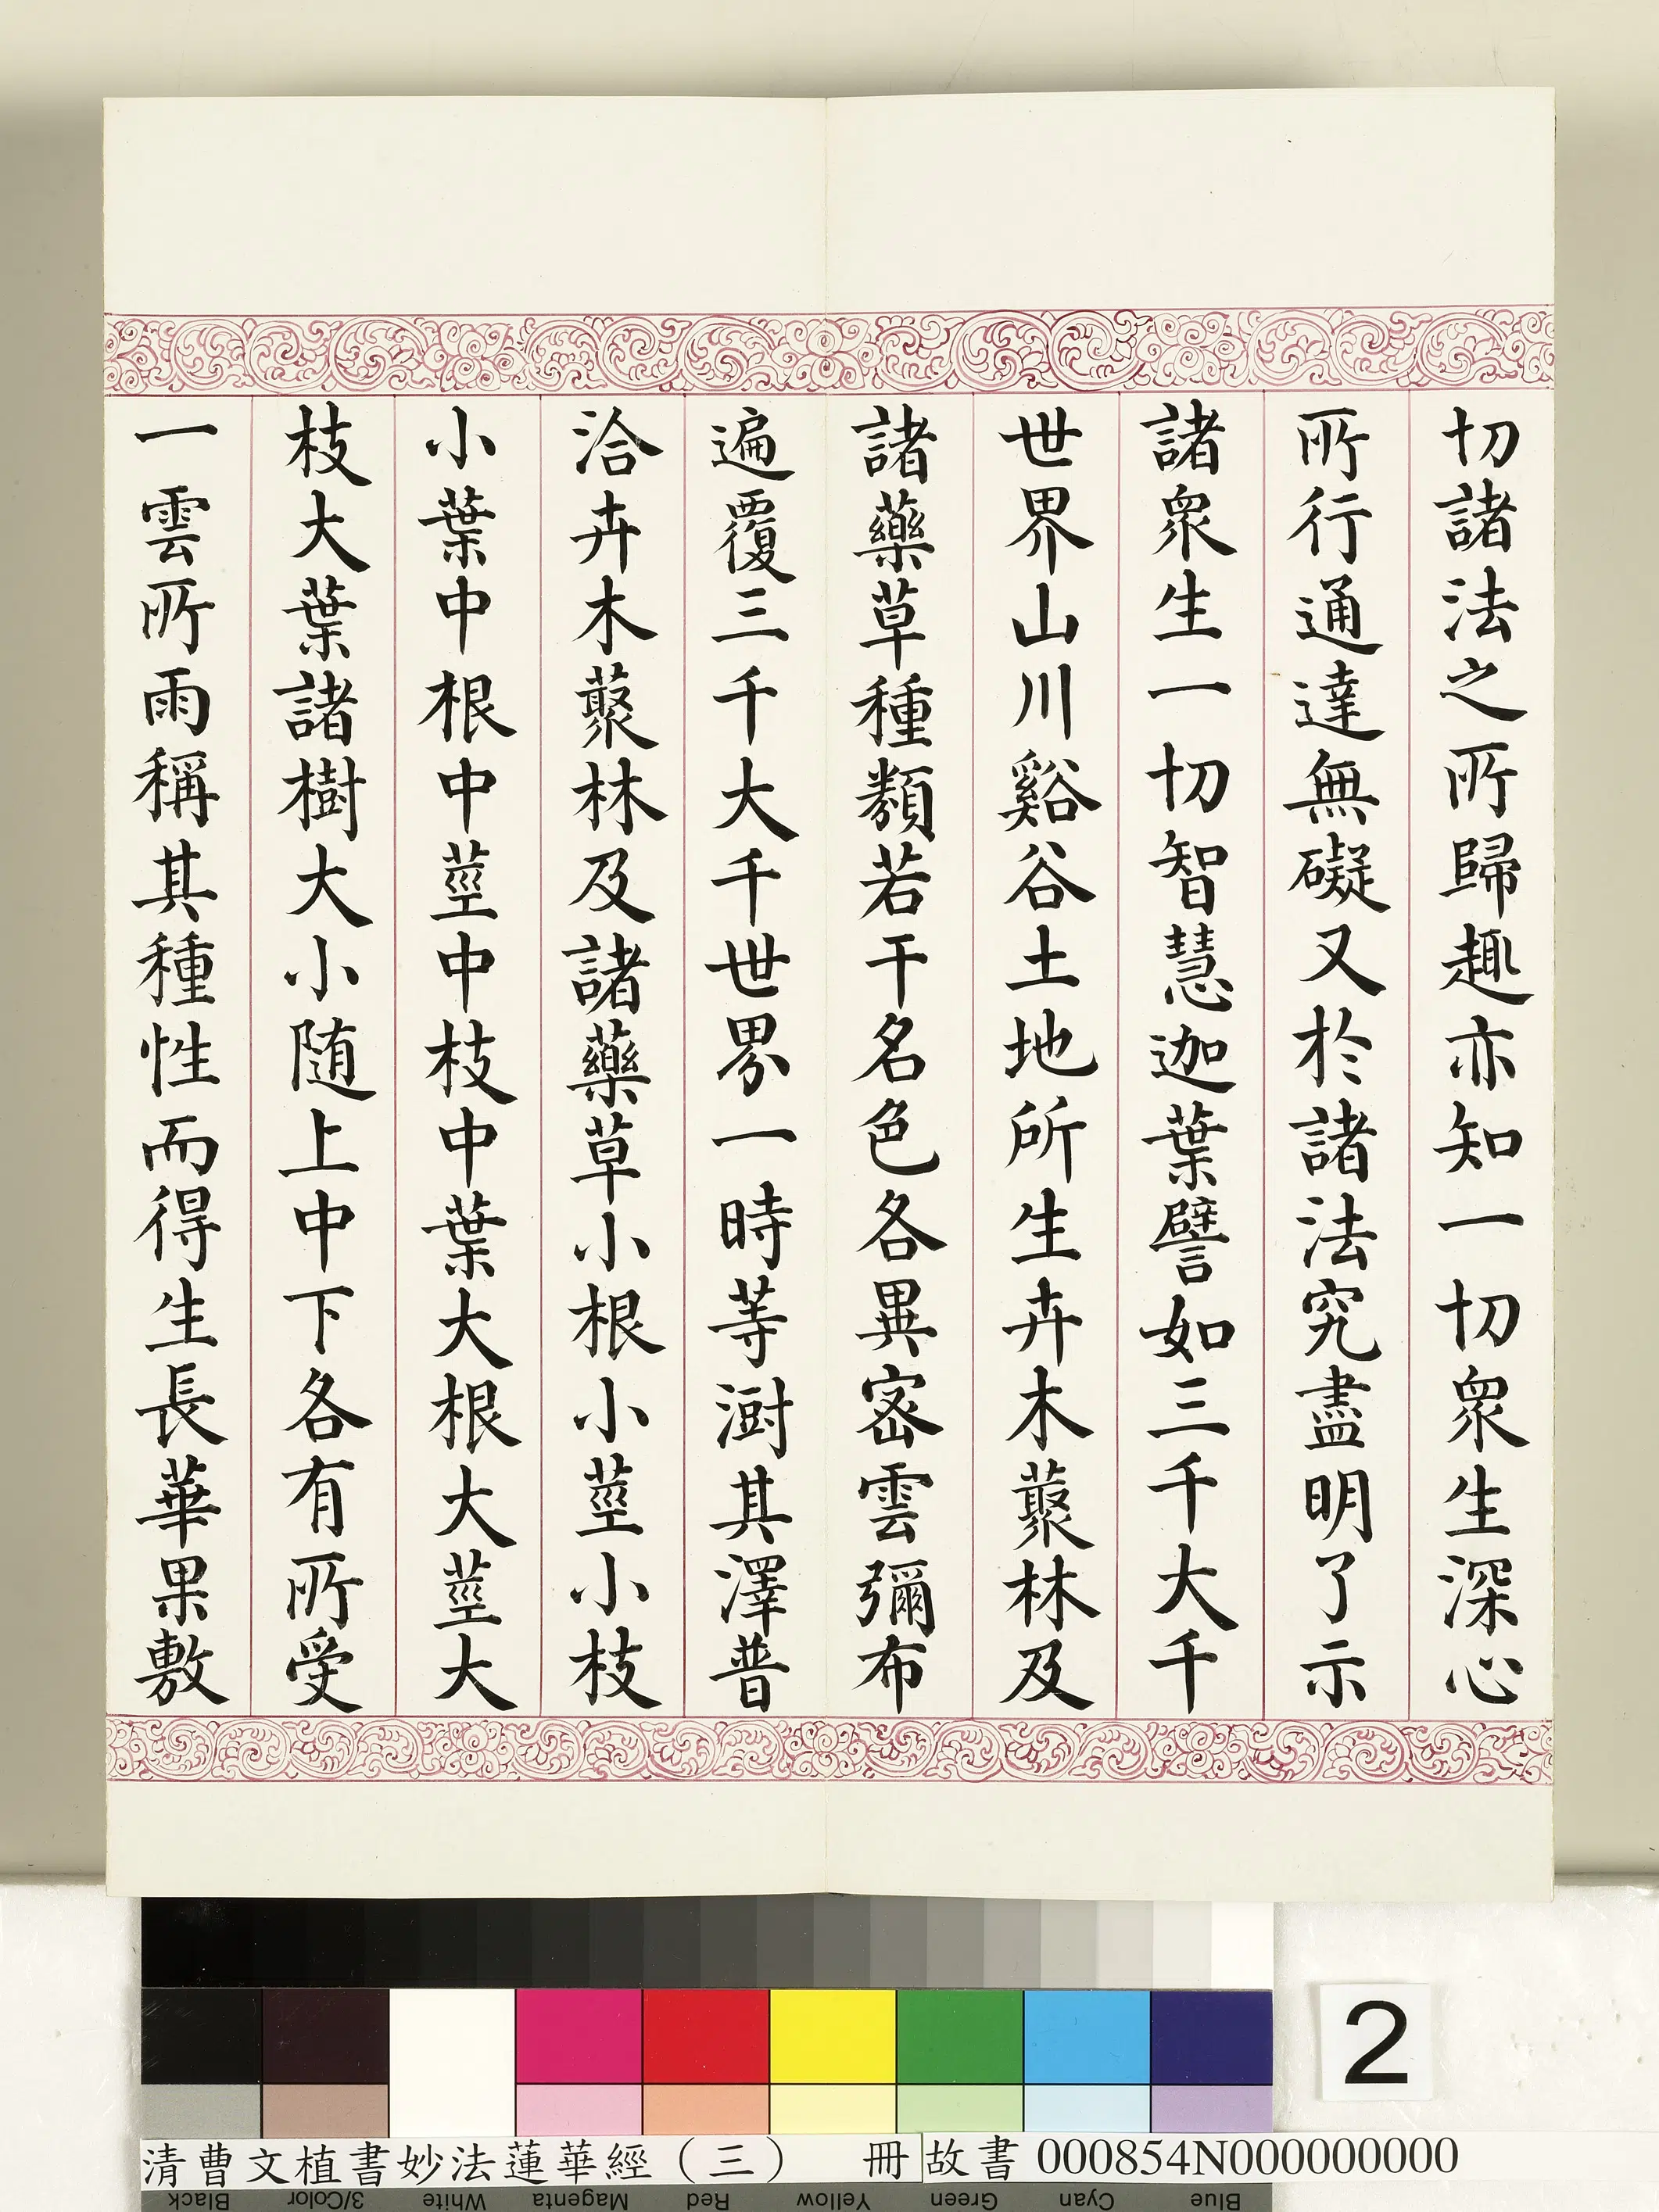 切諸法之所歸趣亦知一切衆生深心
所行通達無礙又於諸法究盡明了示
諸衆生一切智慧迦葉譬如三千大千
世界山川谿谷土地所生卉木藂林及
諸藥草種類若干名色各異密雲彌布
遍覆三千大千世界一時等澍其澤普
洽卉木藂林及諸藥草小根小莖小枝
小葉中根中莖中枝中葉大根大莖大
枝大葉諸樹大小随上中下各有所受
一雲所雨稱其種性而得生長華果敷
2
清曹文植書妙法蓮華經（三） 冊 故書 000854N000000000
Black 3/Color White Magenta Red Yellow Green Cyan Blue